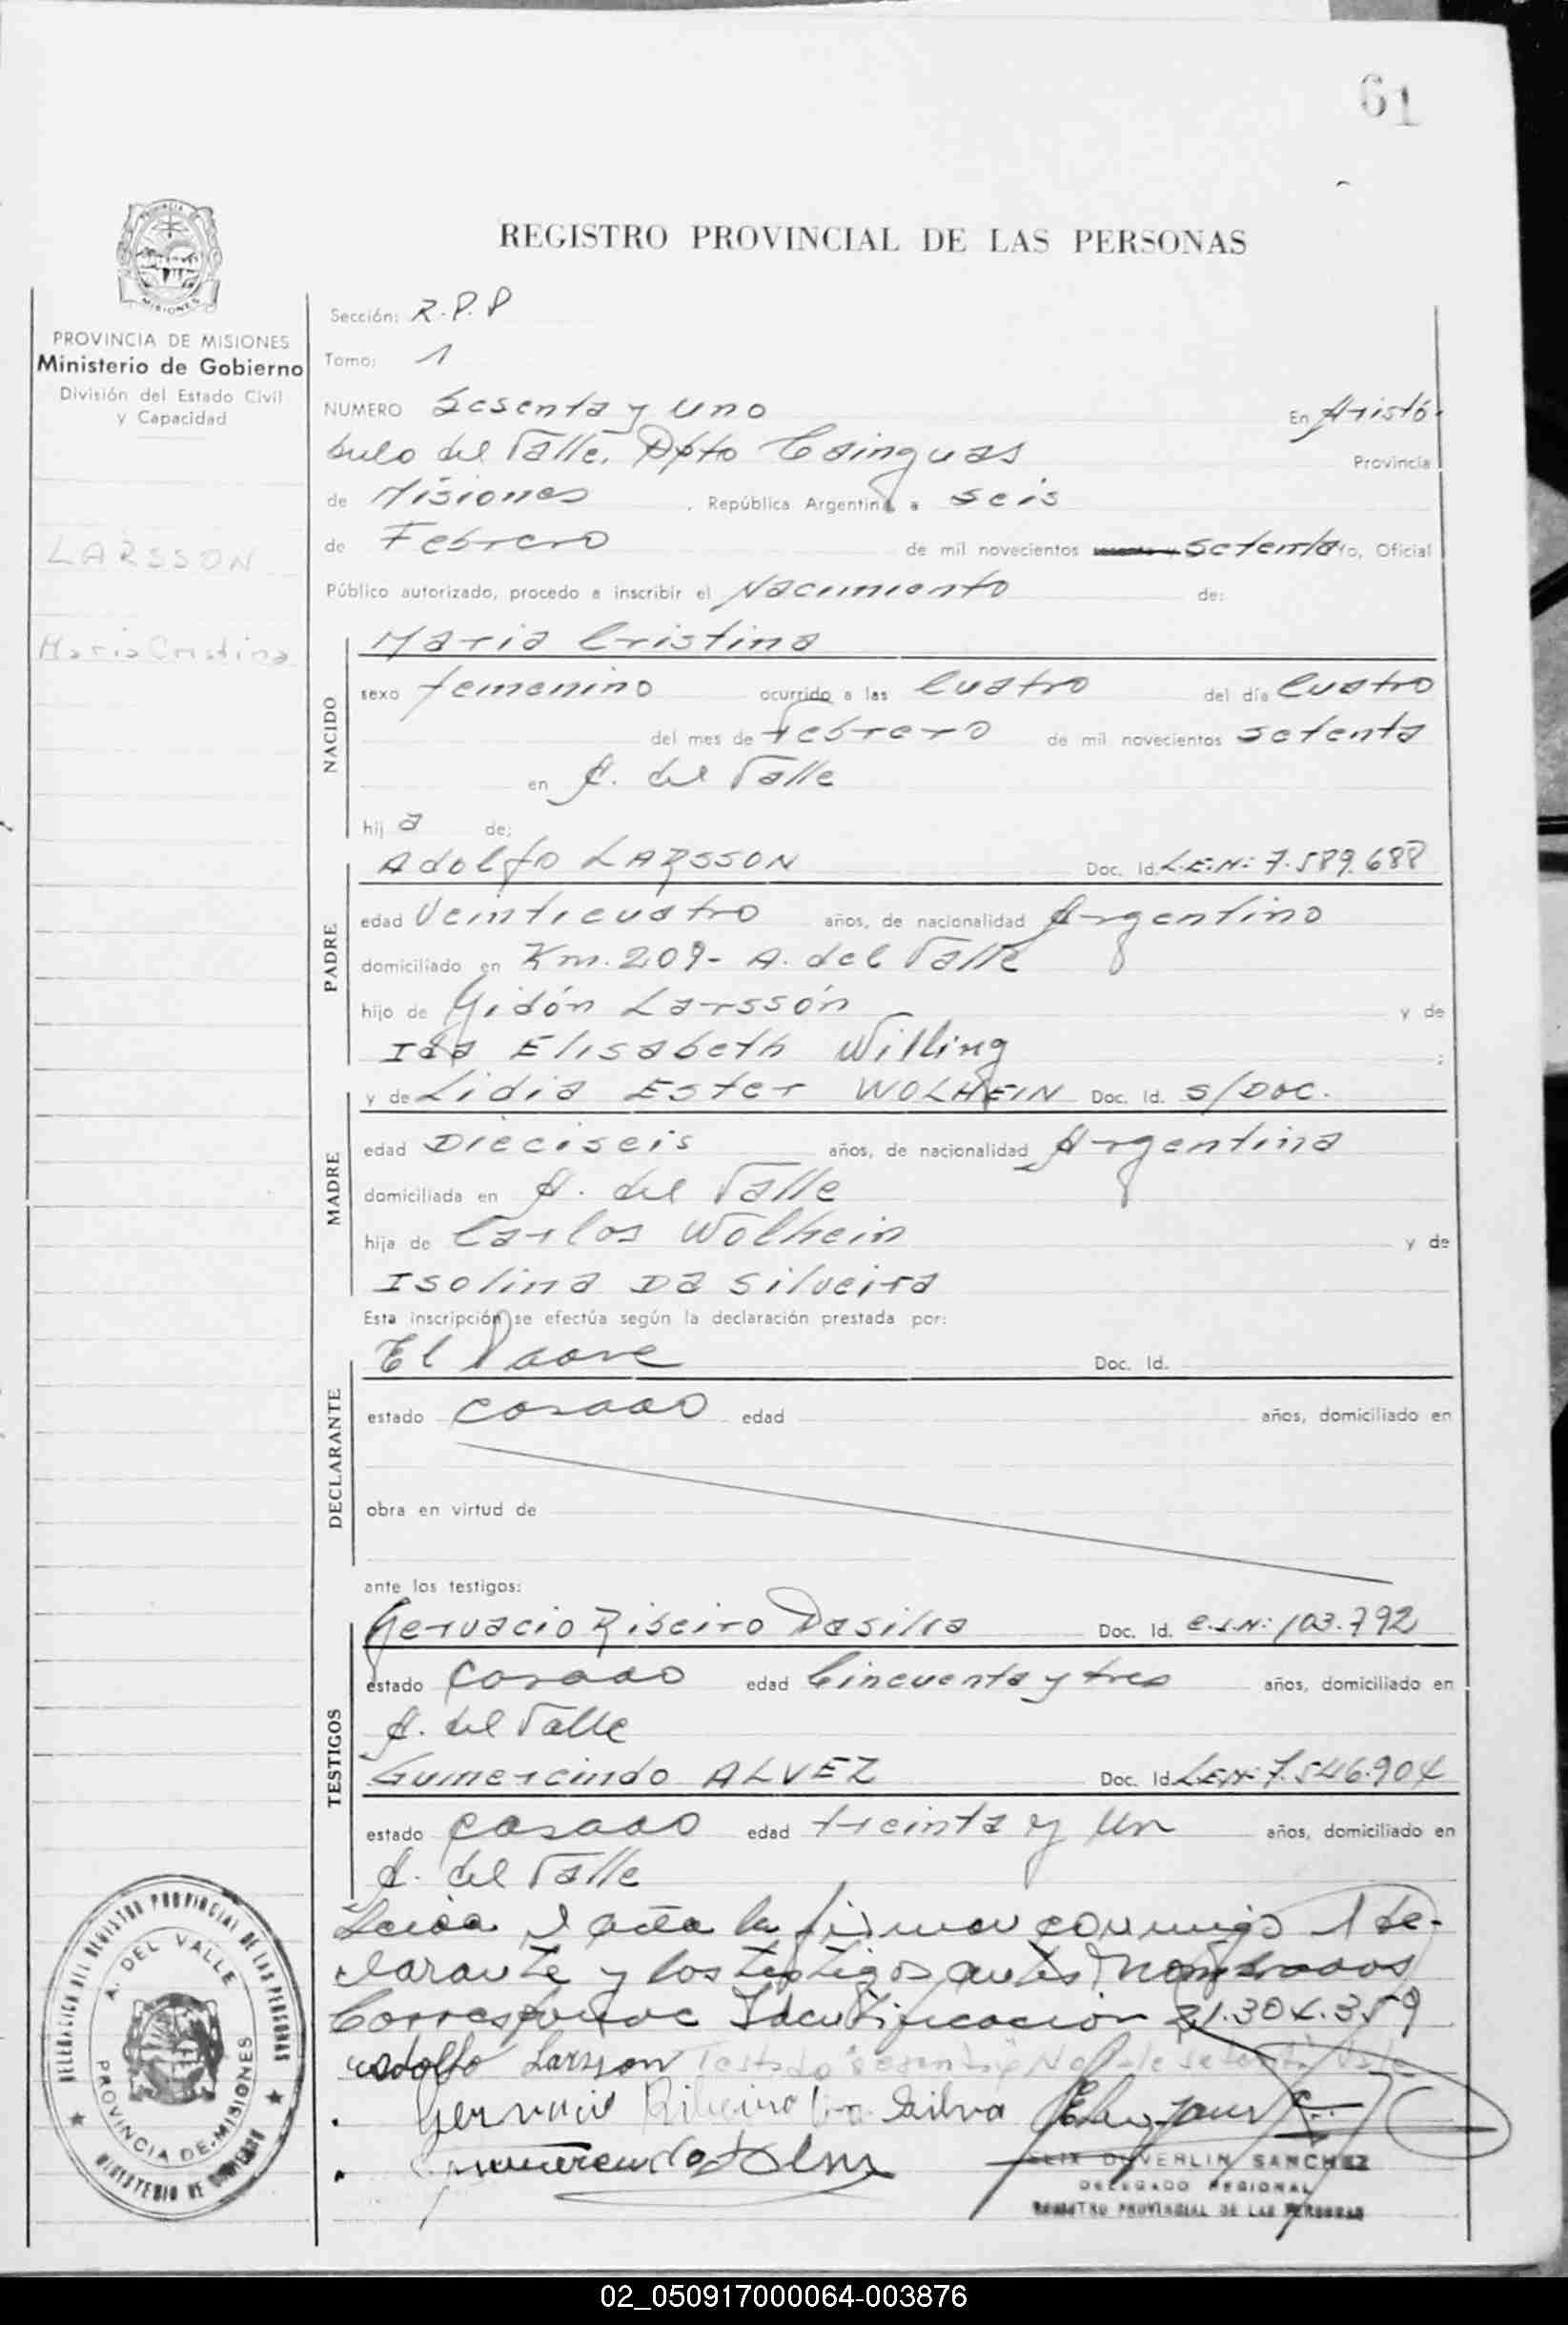 61
REGISTRO PROVINCIAL DE LAS PERSONAS
PROVINCIA DE MISIONES
Ministerio de Gobierno
División del Estado Civil
y Capacidad
LARSSON
Maria Cristina
Sección: R.P.P
Tomo: 1
NUMERO Sesenta y uno En Aristó-
bulo del Valle. Dpto Cainguas Provincia
de Misiones, República Argentina a seis
de Febrero de mil novecientos setenta Yo, Oficial
Público autorizado, procedo a inscribir el Nacimiento de:
NACIDO
Maria Cristina
sexo femenino ocurrido a las Cuatro del día Cuatro
del mes de Febrero de mil novecientos setenta
en A. del Valle
hij a de:
PADRE
Adolfo LARSSON Doc. Id. L.E.N: 7.589.688
edad Veinticuatro años, de nacionalidad Argentino
domiciliado en Km. 209- A. del Valle
hijo de Gidón Larssón y de
Ida Elisabeth Willing ;
MADRE
y de Lidia Ester WOLHEIN Doc. Id. S/DOC.
edad Dieciseis años, de nacionalidad Argentina
domiciliada en A. del Valle
hija de Carlos Wolhein y de
Isolina Da Silveira
Esta inscripción se efectúa según la declaración prestada por:
DECLARANTE
El Padre Doc. Id.
estado casado edad años, domiciliado en
obra en virtud de
ante los testigos:
TESTIGOS
Gervacio Ribeiro Dasilva Doc. Id. C.I.N: 103.792
estado casado edad Cincuenta y tres años, domiciliado en
A. del Valle
Gumercindo ALVEZ Doc. Id. L.E.N: 7.546.904
estado casado edad treinta y Un años, domiciliado en
A. del Valle
Leida el acta la firman conmigo el de-
clarante y los testigos antes nombrados
Corresponde Identificación 21.304.359
Adolfo Larsson Testado "sesenta y" No vale setenta Vale
Gervacio Ribeiro Da Silva
DELEGACION DEL REGISTRO PROVINCIAL DE LAS PERSONAS
A. DEL VALLE
PROVINCIA DE MISIONES
MINISTERIO DE GOBIERNO
SANCHEZ
DELEGADO REGIONAL
REGISTRO PROVINCIAL DE LAS PERSONAS
02_050917000064-003876